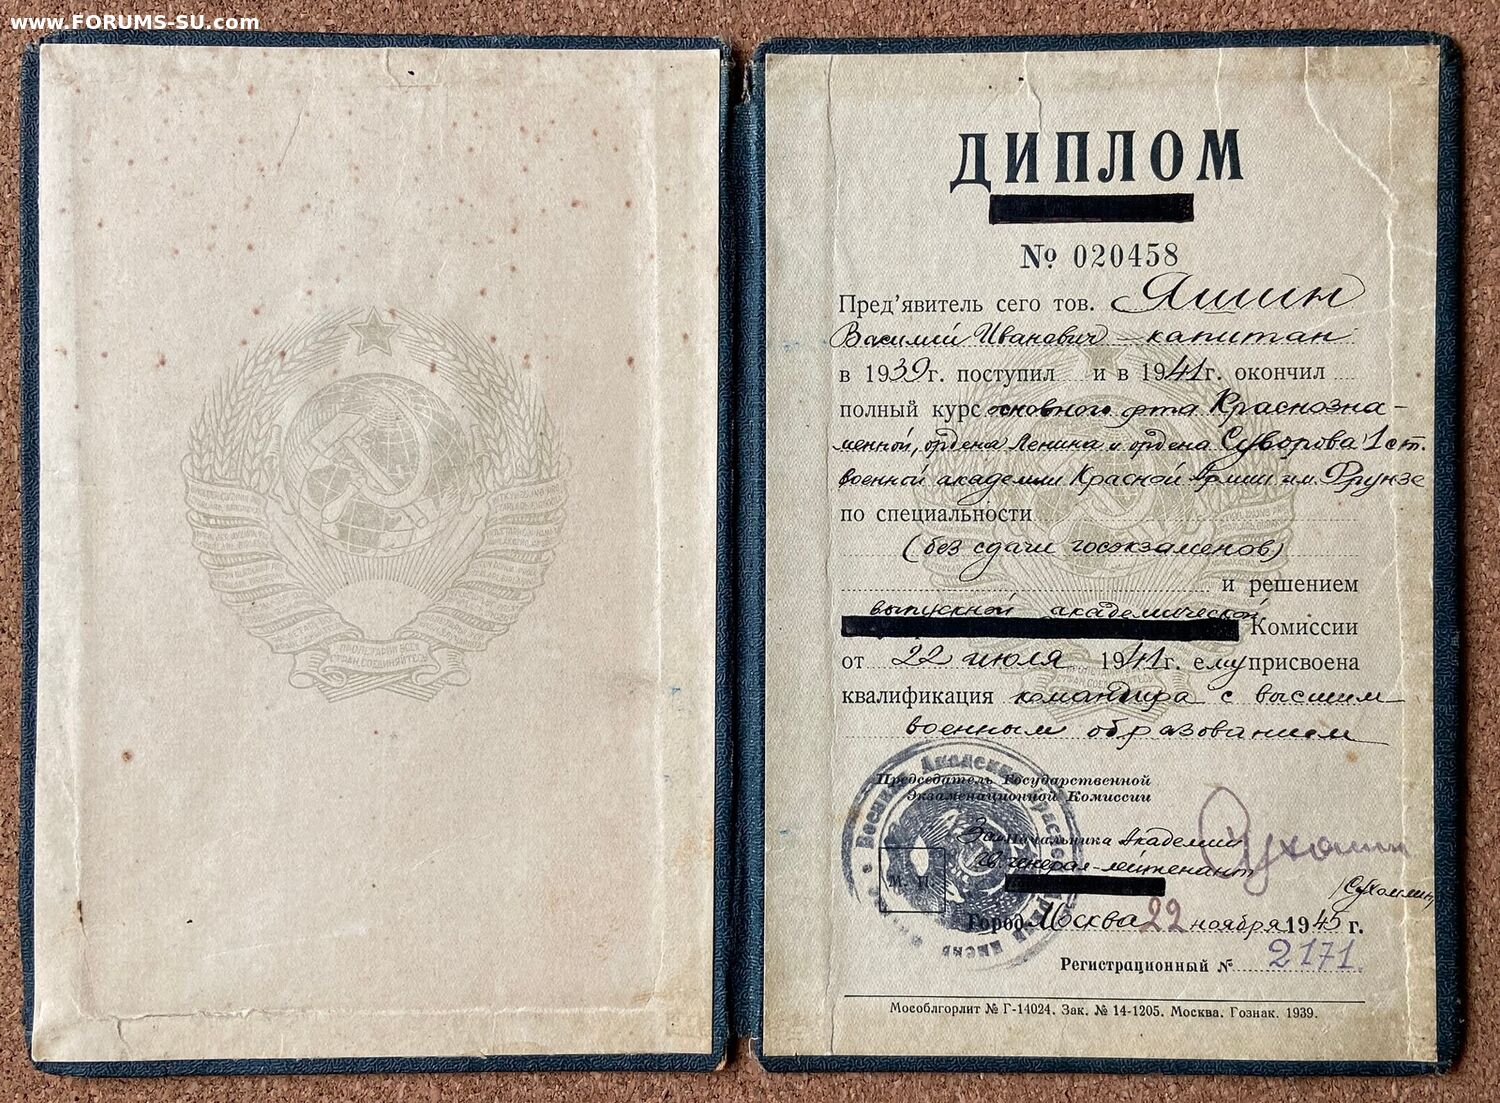 www.FORUMS-SU.com
ПРОЛЕТАРИИ ВСЕХ
СТРАН, СОЕДИНЯЙТЕСЬ
ДИПЛОМ
№ 020458
Пред'явитель сего тов. Яшин
Василий Иванович – капитан
в 1939г. поступил и в 1941г. окончил
полный курс основного ф-та Краснозна-
менной, ордена Ленина и ордена Суворова 1 ст.
военной академии Красной Армии им. Фрунзе
по специальности
(без сдачи госэкзаменов)
и решением
выпускной академической
Комиссии
от 22 июля 1941г. ему присвоена
квалификация командира с высшим
военным образованием
Председатель Государственной
Экзаменационной Комиссии
Зам Начальника Академии
гв. генерал-лейтенант
(Сухомлин)
М. П.
Город Москва 22 ноября 1945 г.
Регистрационный № 2171.
Мособлгорлит № Г-14024. Зак. № 14-1205. Москва. Гознак. 1939.